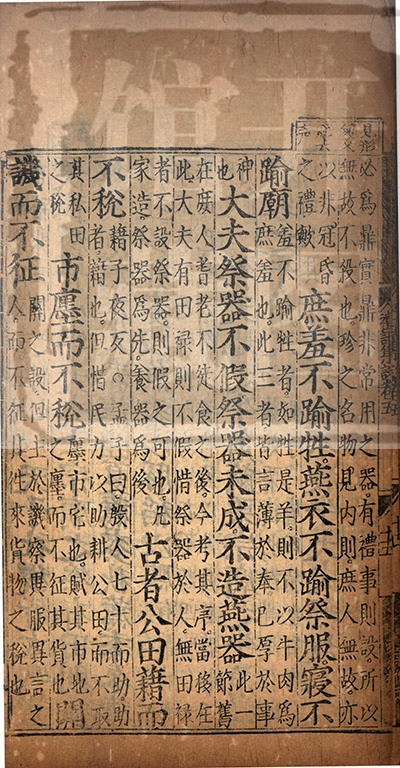 必爲鼎實鼎非常用之器有禮事則設所以
無故不殺也珍之名物見內則庶人無故亦
以非冠昏
之禮歟
庶羞不踰牲燕衣不踰祭服寢不
踰廟
羞不踰牲者如牲是羊則不以牛肉爲
庶羞也此三者皆言薄於奉己厚於事
神
也
大夫祭器不假祭器未成不造燕器
此一
節舊
在庶人耆老不徒食之後今考其序當移在
此大夫有田祿則不假借祭器於人無田祿
者不設祭器則假之可也凡
家造祭器爲先養器爲後
古者公田藉而
不稅
藉子夜反○孟子曰殷人七十而助助
者藉也但借民力以助耕公田而不取
其私田
之稅
市廛而不稅
廛市宅也賦其市地
之廛而不征其貨也
關
譏而不征
關之設但主於譏察異服異言之
人而不征其往來貨物之稅也